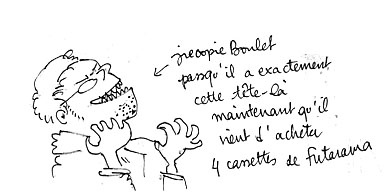 je copie Boulet
pasqu'il a exactement
cette tête-là
maintenant qu'il
vient d'acheter
4 cassettes de futurama